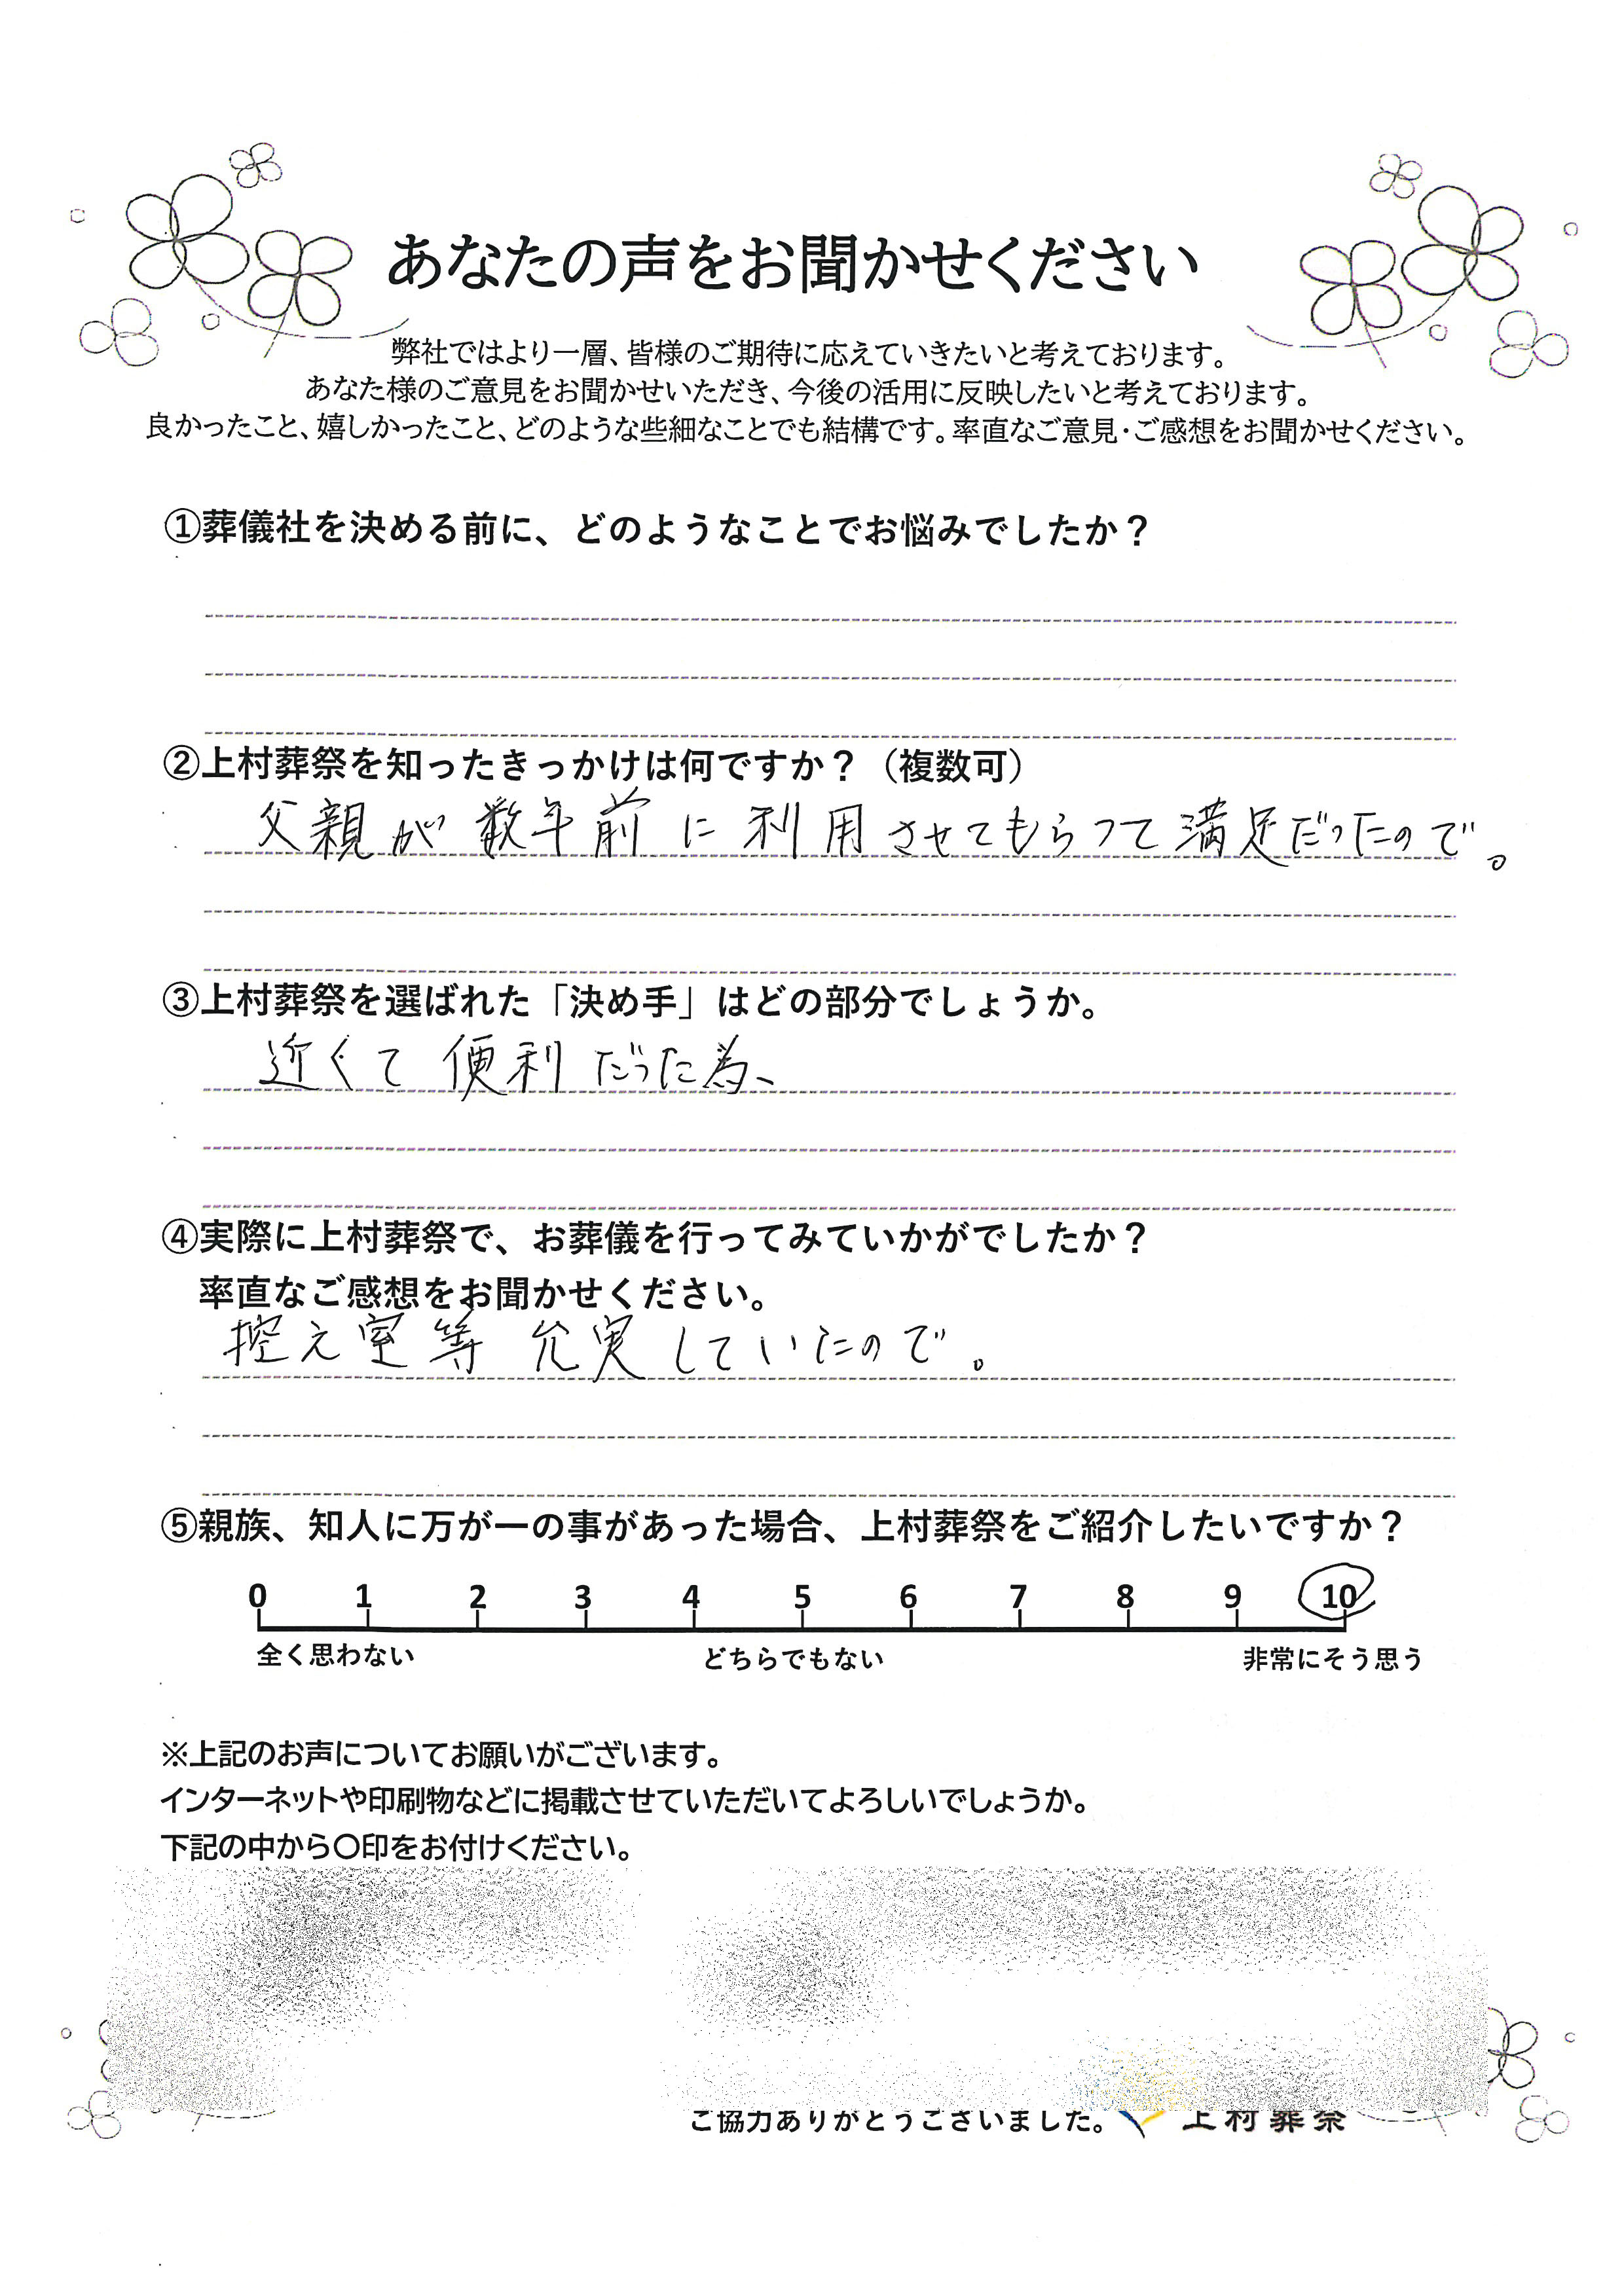 あなたの声をお聞かせください
弊社ではより一層、皆様のご期待に応えていきたいと考えております。
あなた様のご意見をお聞かせいただき、今後の活用に反映したいと考えております。
良かったこと、嬉しかったこと、どのような些細なことでも結構です。率直なご意見・ご感想をお聞かせください。
①葬儀社を決める前に、どのようなことでお悩みでしたか？
②上村葬祭を知ったきっかけは何ですか？（複数可）
父親が数年前に利用させてもらって満足だったので。
③上村葬祭を選ばれた「決め手」はどの部分でしょうか。
近くて便利だった為、
④実際に上村葬祭で、お葬儀を行ってみていかがでしたか？
率直なご感想をお聞かせください。
控え室等 充実していたので。
⑤親族、知人に万が一の事があった場合、上村葬祭をご紹介したいですか？
0 1 2 3 4 5 6 7 8 9 10
全く思わない どちらでもない 非常にそう思う
※上記のお声についてお願いがございます。
インターネットや印刷物などに掲載させていただいてよろしいでしょうか。
下記の中から〇印をお付けください。
ご協力ありがとうございました。 上村葬祭